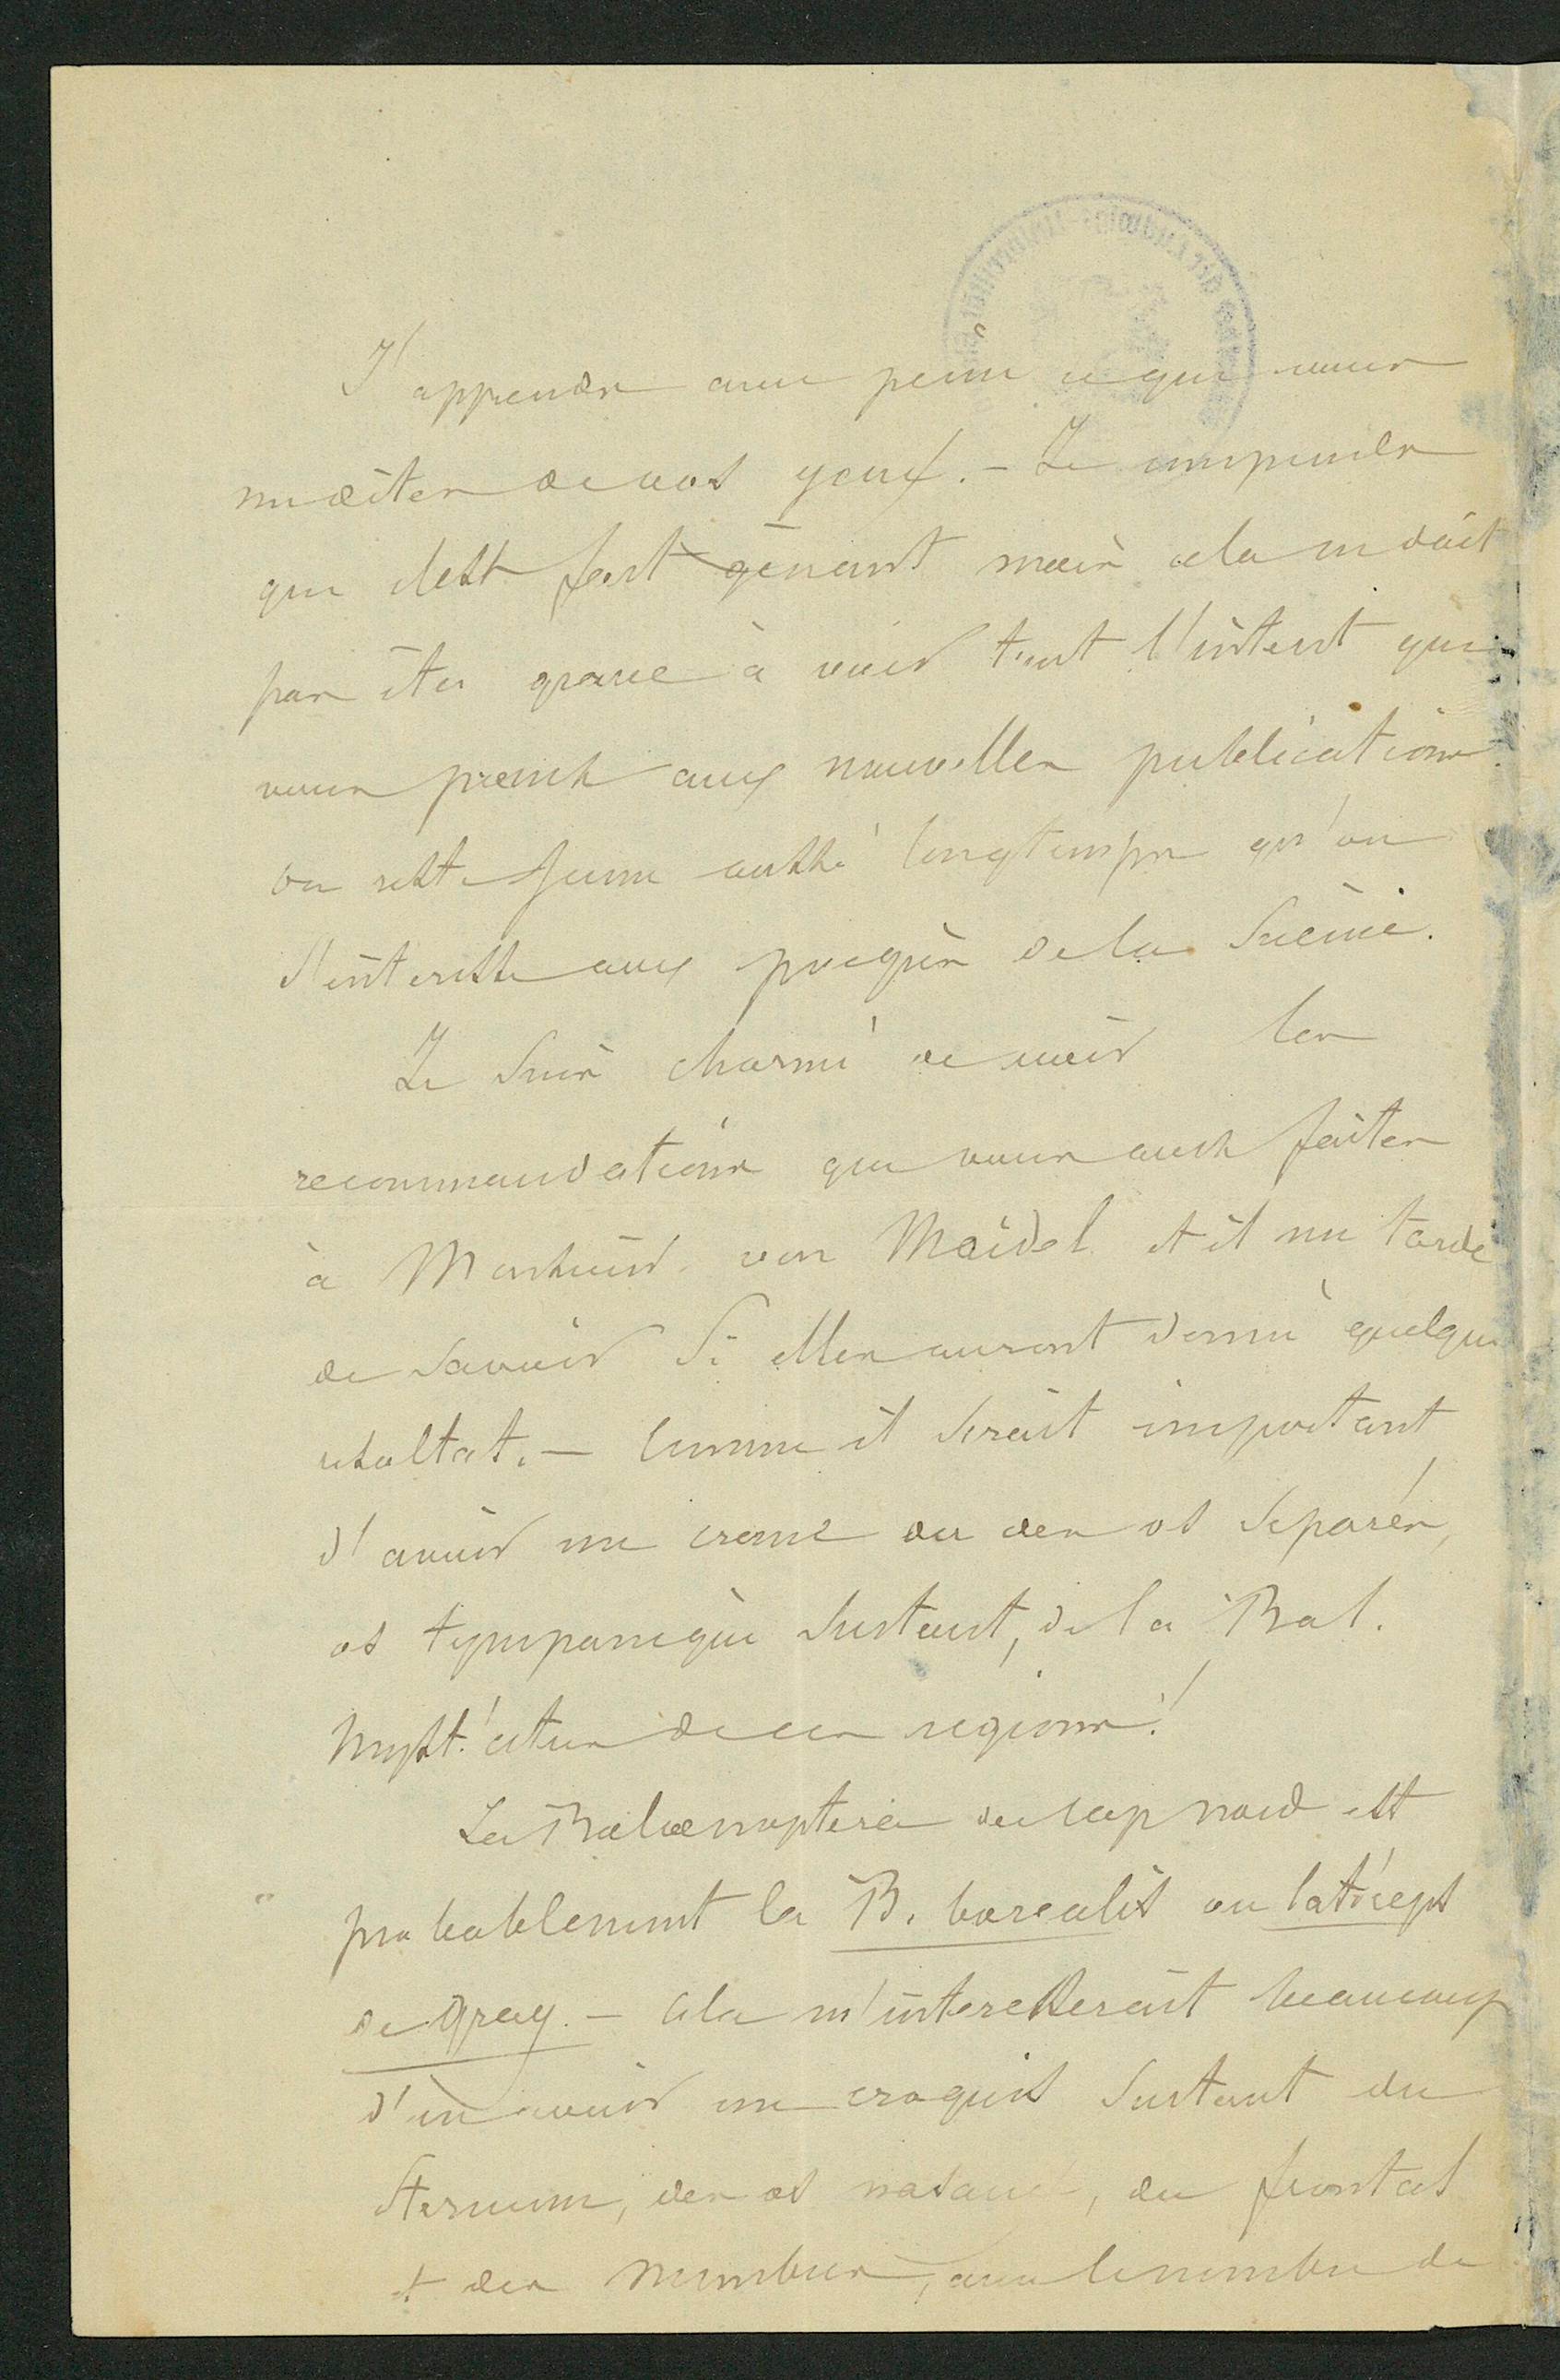 J'apprends avec peine ce que vous
me dites de vos yeux. - Je comprends
que c'est fort gênant mais cela ne doit
pas être grave à voir tout l'intérêt que
vous prenez aux nouvelles publications
on reste jeune aussi longtemps qu'on
s'intéresse aux progrès de la Science.
Je suis charmé de voir les
recommandations que vous avez faites
à Monsieur von Maidel et il me tarde
de savoir si elles auront donné quelque
résultat. - Comme il serait important
d'avoir un crane ou des os séparés,
os tympanique surtout, de la Bal.
Myst! cetus de ces régions!
La Balaenoptera du cap nord est
probablement la B. borealis ou laticeps
de Gray. - Cela m'interesserait beaucoup
d'en avoir un croquis surtout du
sternum, des os nasaux, du frontal
et des membres, avec le nombre de